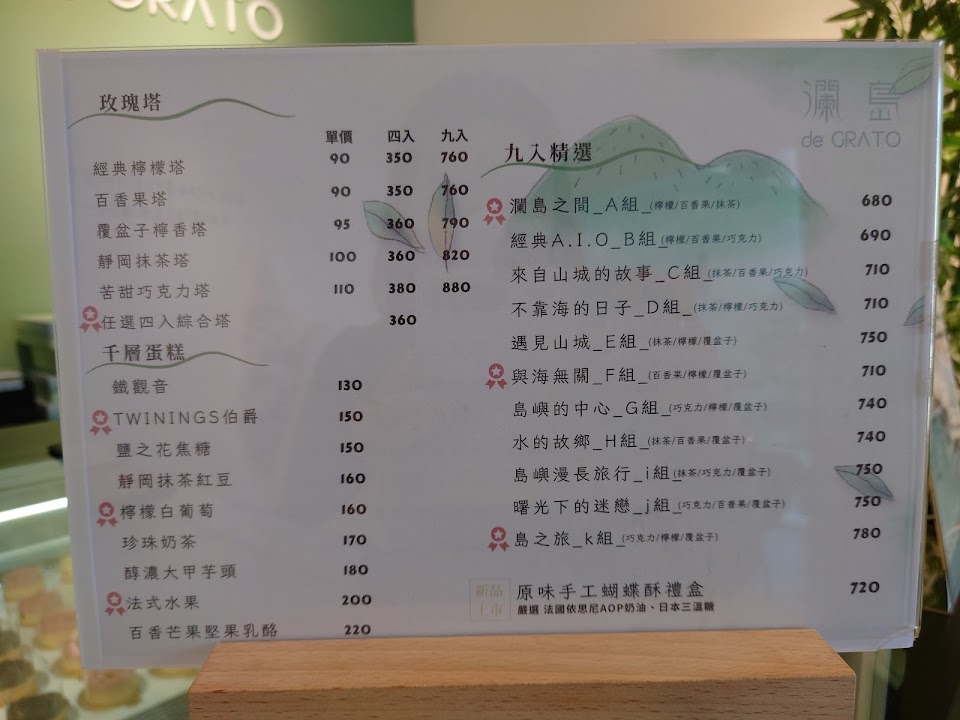 GRATO
玫瑰塔
單價 四入 九入
經典檸檬塔 90 350 760
百香果塔 90 350 760
覆盆子檸香塔 95 360 790
靜岡抹茶塔 100 360 820
苦甜巧克力塔 110 380 880
任選四入綜合塔 360
千層蛋糕
鐵觀音 130
TWININGS伯爵 150
鹽之花焦糖 150
靜岡抹茶紅豆 160
檸檬白葡萄 160
珍珠奶茶 170
醇濃大甲芋頭 180
法式水果 200
百香芒果堅果乳酪 220
瀾島
de GRATO
九入精選
瀾島之間_A組_(檸檬/百香果/抹茶) 680
經典A.I.O_B組_(檸檬/百香果/巧克力) 690
來自山城的故事_C組_(抹茶/百香果/巧克力) 710
不靠海的日子_D組_(抹茶/檸檬/巧克力) 710
遇見山城_E組_(抹茶/檸檬/覆盆子) 750
與海無關_F組_(百香果/檸檬/覆盆子) 710
島嶼的中心_G組_(巧克力/檸檬/覆盆子) 740
水的故鄉_H組_(抹茶/百香果/覆盆子) 740
島嶼漫長旅行_i組_(抹茶/巧克力/覆盆子) 750
曙光下的迷戀_j組_(巧克力/百香果/覆盆子) 750
島之旅_k組_(巧克力/檸檬/覆盆子) 780
新品上市 原味手工蝴蝶酥禮盒 720
嚴選 法國依思尼AOP奶油、日本三溫糖